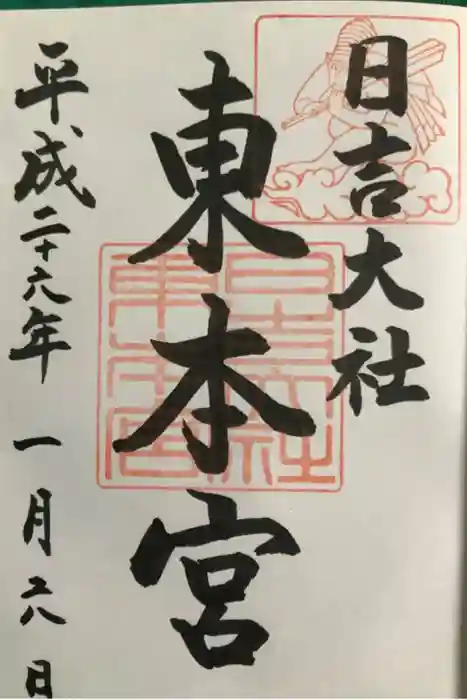 日吉大社
東本宮
平成二十六年一月六日
日吉大社
東本宮